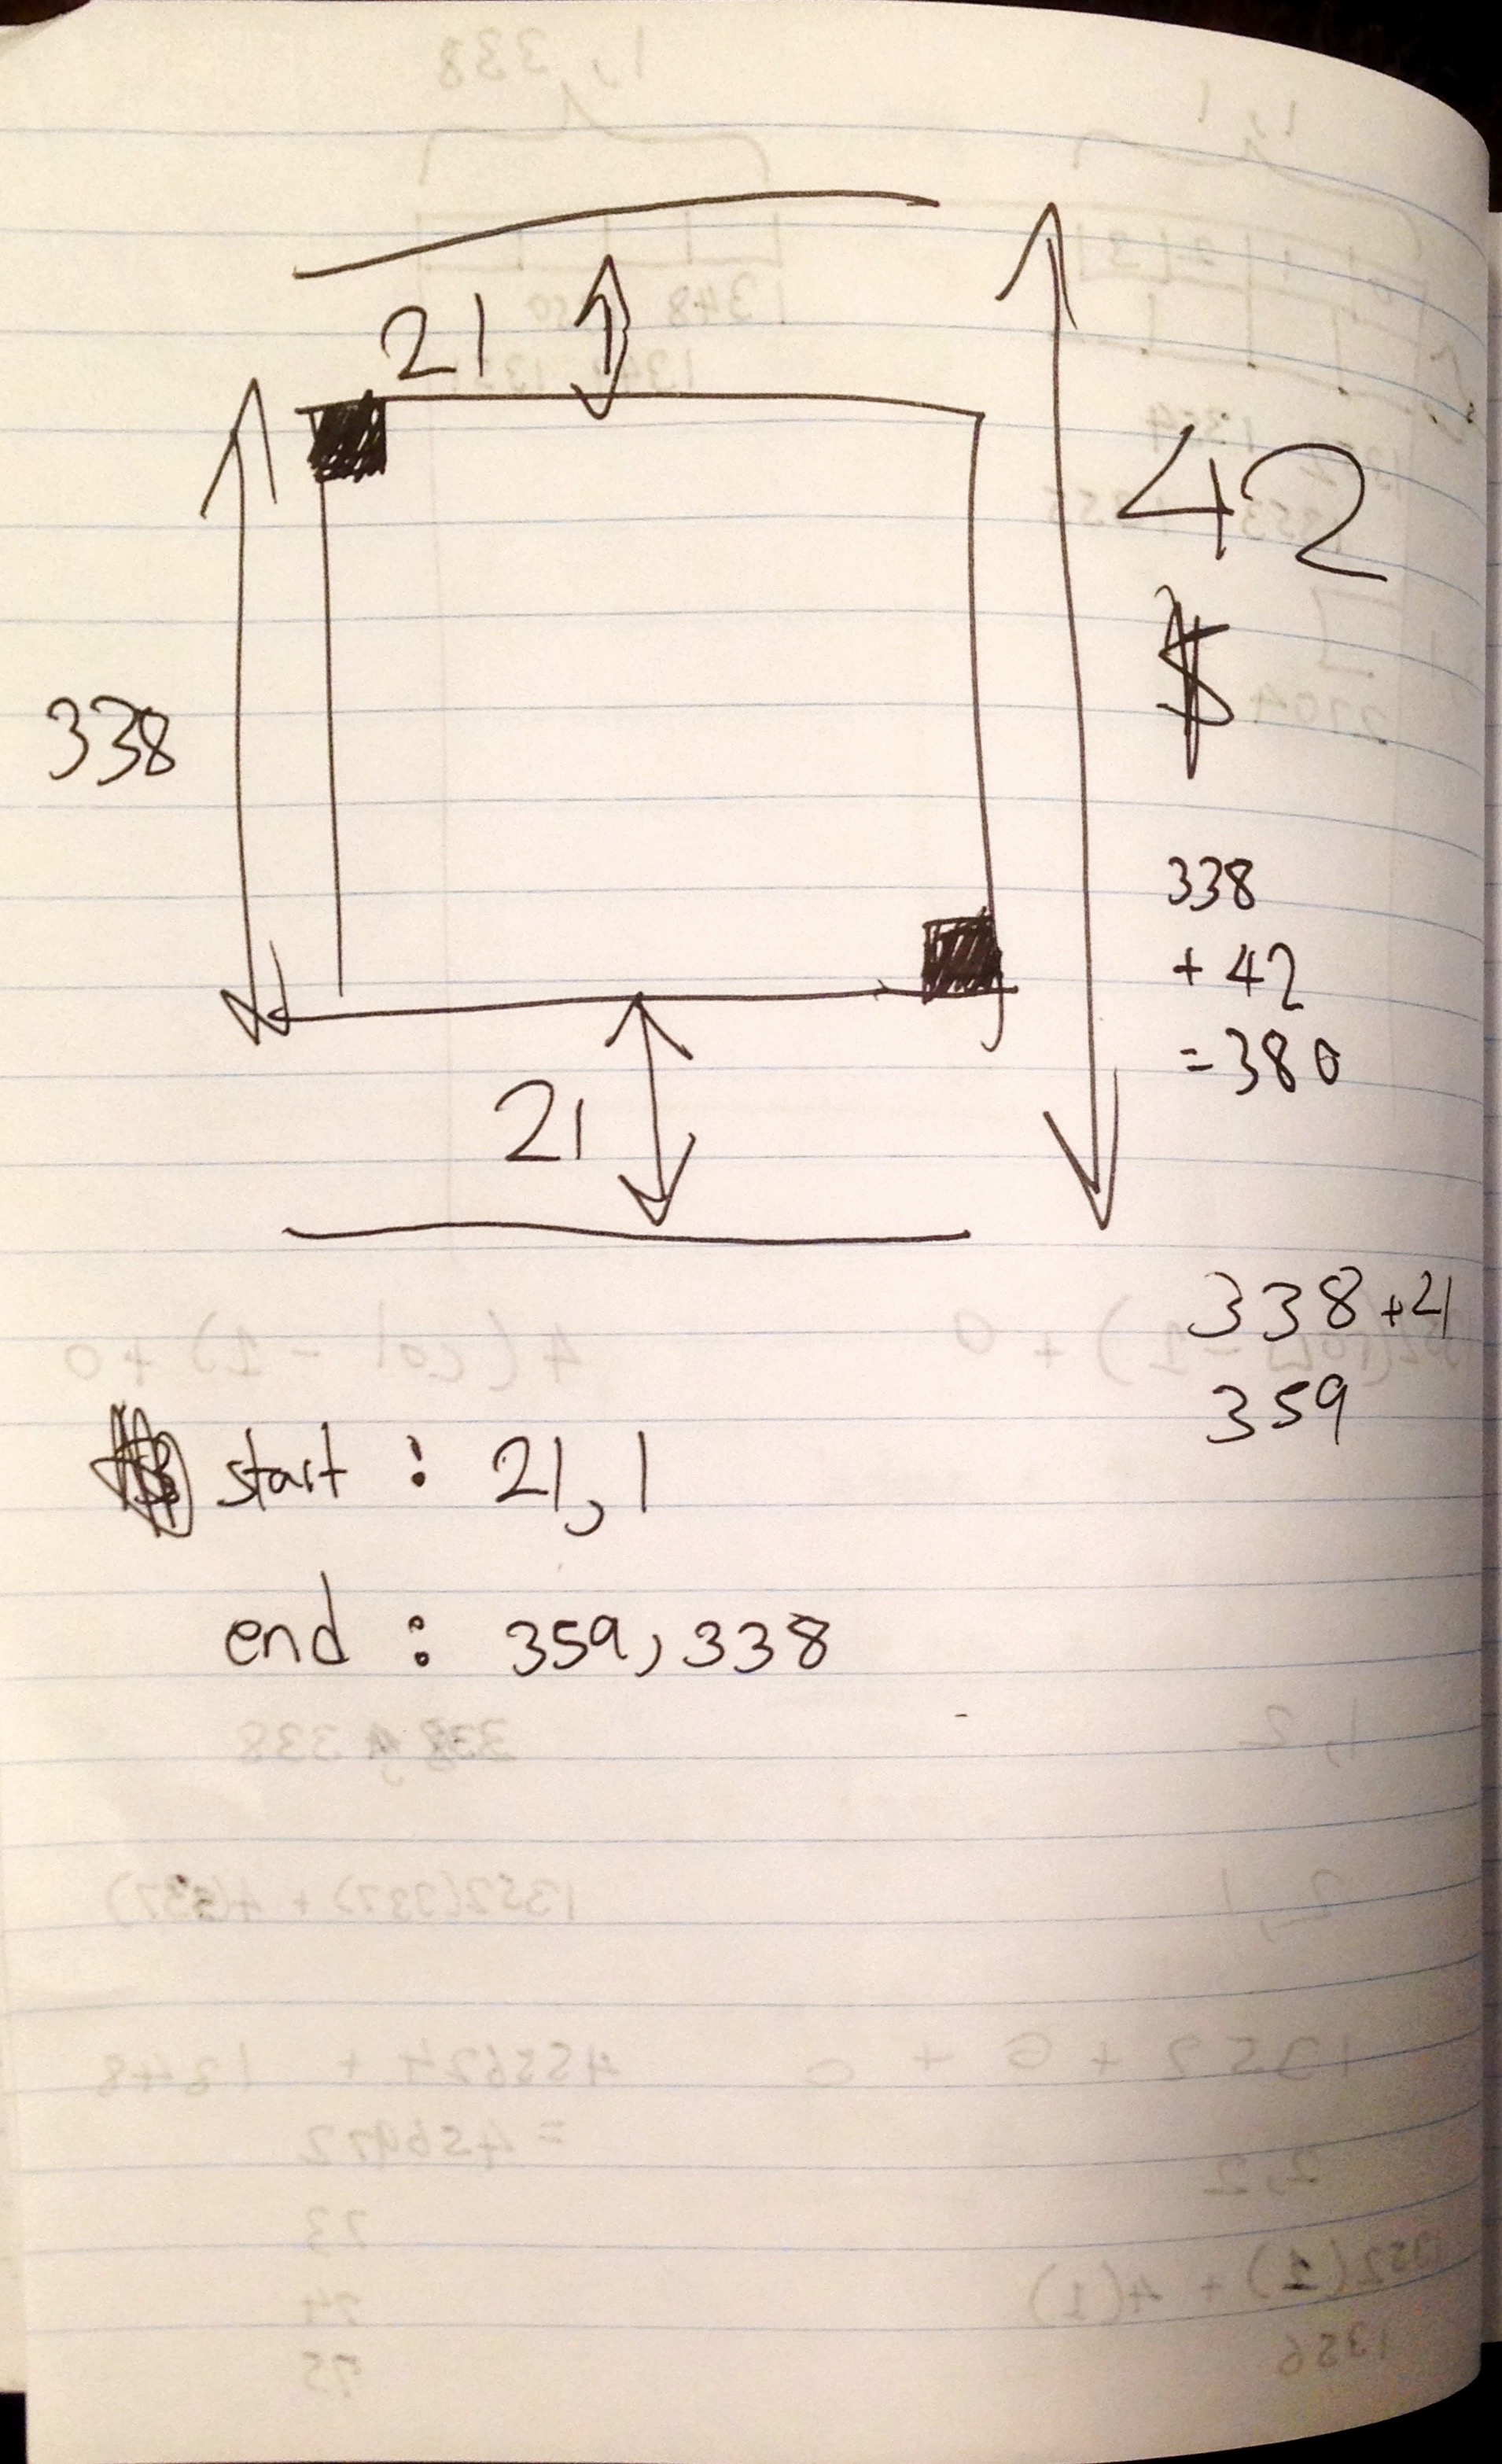 21
42
$
338
338
+ 42
= 380
21
338 + 21
359
start : 21, 1
end : 359, 338